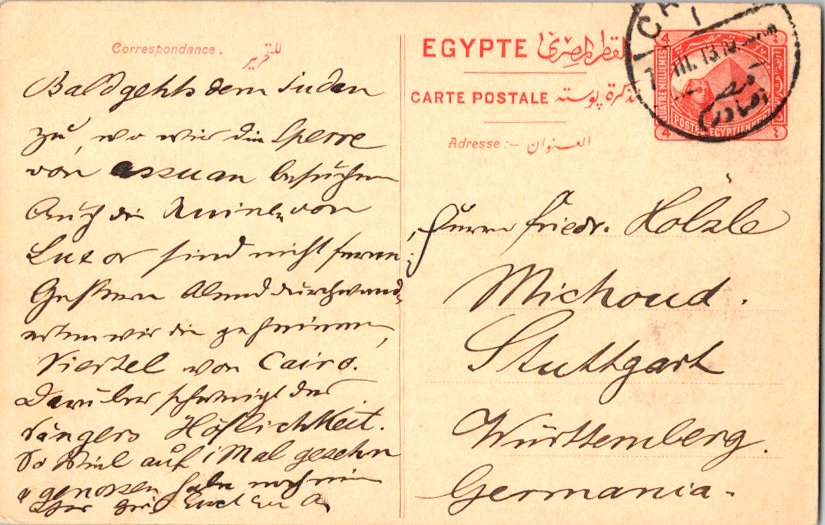 Correspondance.
Bald gehts dem Sudan
zu, wo wir die Sperre
von Assuan besuchen
Auch die Ruinen von
Luxor sind nicht ferne
Gestern Abend durchwand,
erten wir die geheimen
Viertel von Cairo.
Darüber schweigt des
Sängers Höflichkeit.
So viel auf 1 Mal gesehn
u genossen habe noch nie
Euch
EGYPTE القطر المصرى
CARTE POSTALE تذكرة پوسته
Adresse :— العنوان
Herrn Friedr. Hölzle
Michoud.
Stuttgart
Württemberg.
Germania.
CA
III. 13
QUATRE MILLIEMES
POSTES EGYPTIENNES
4 4